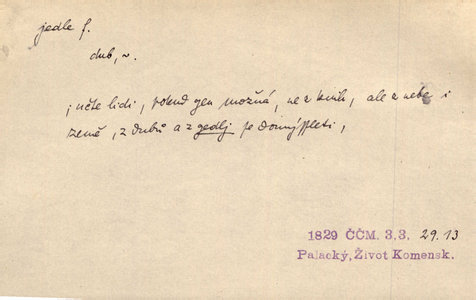 jedle f.
dub, ~.
; učte lidi, pokud gen možná, ne z knih, ale z nebe i
země, z dubů a z gedlj se
1829 ČČM. 3,3. 29.13
Palacký, Život Komensk.